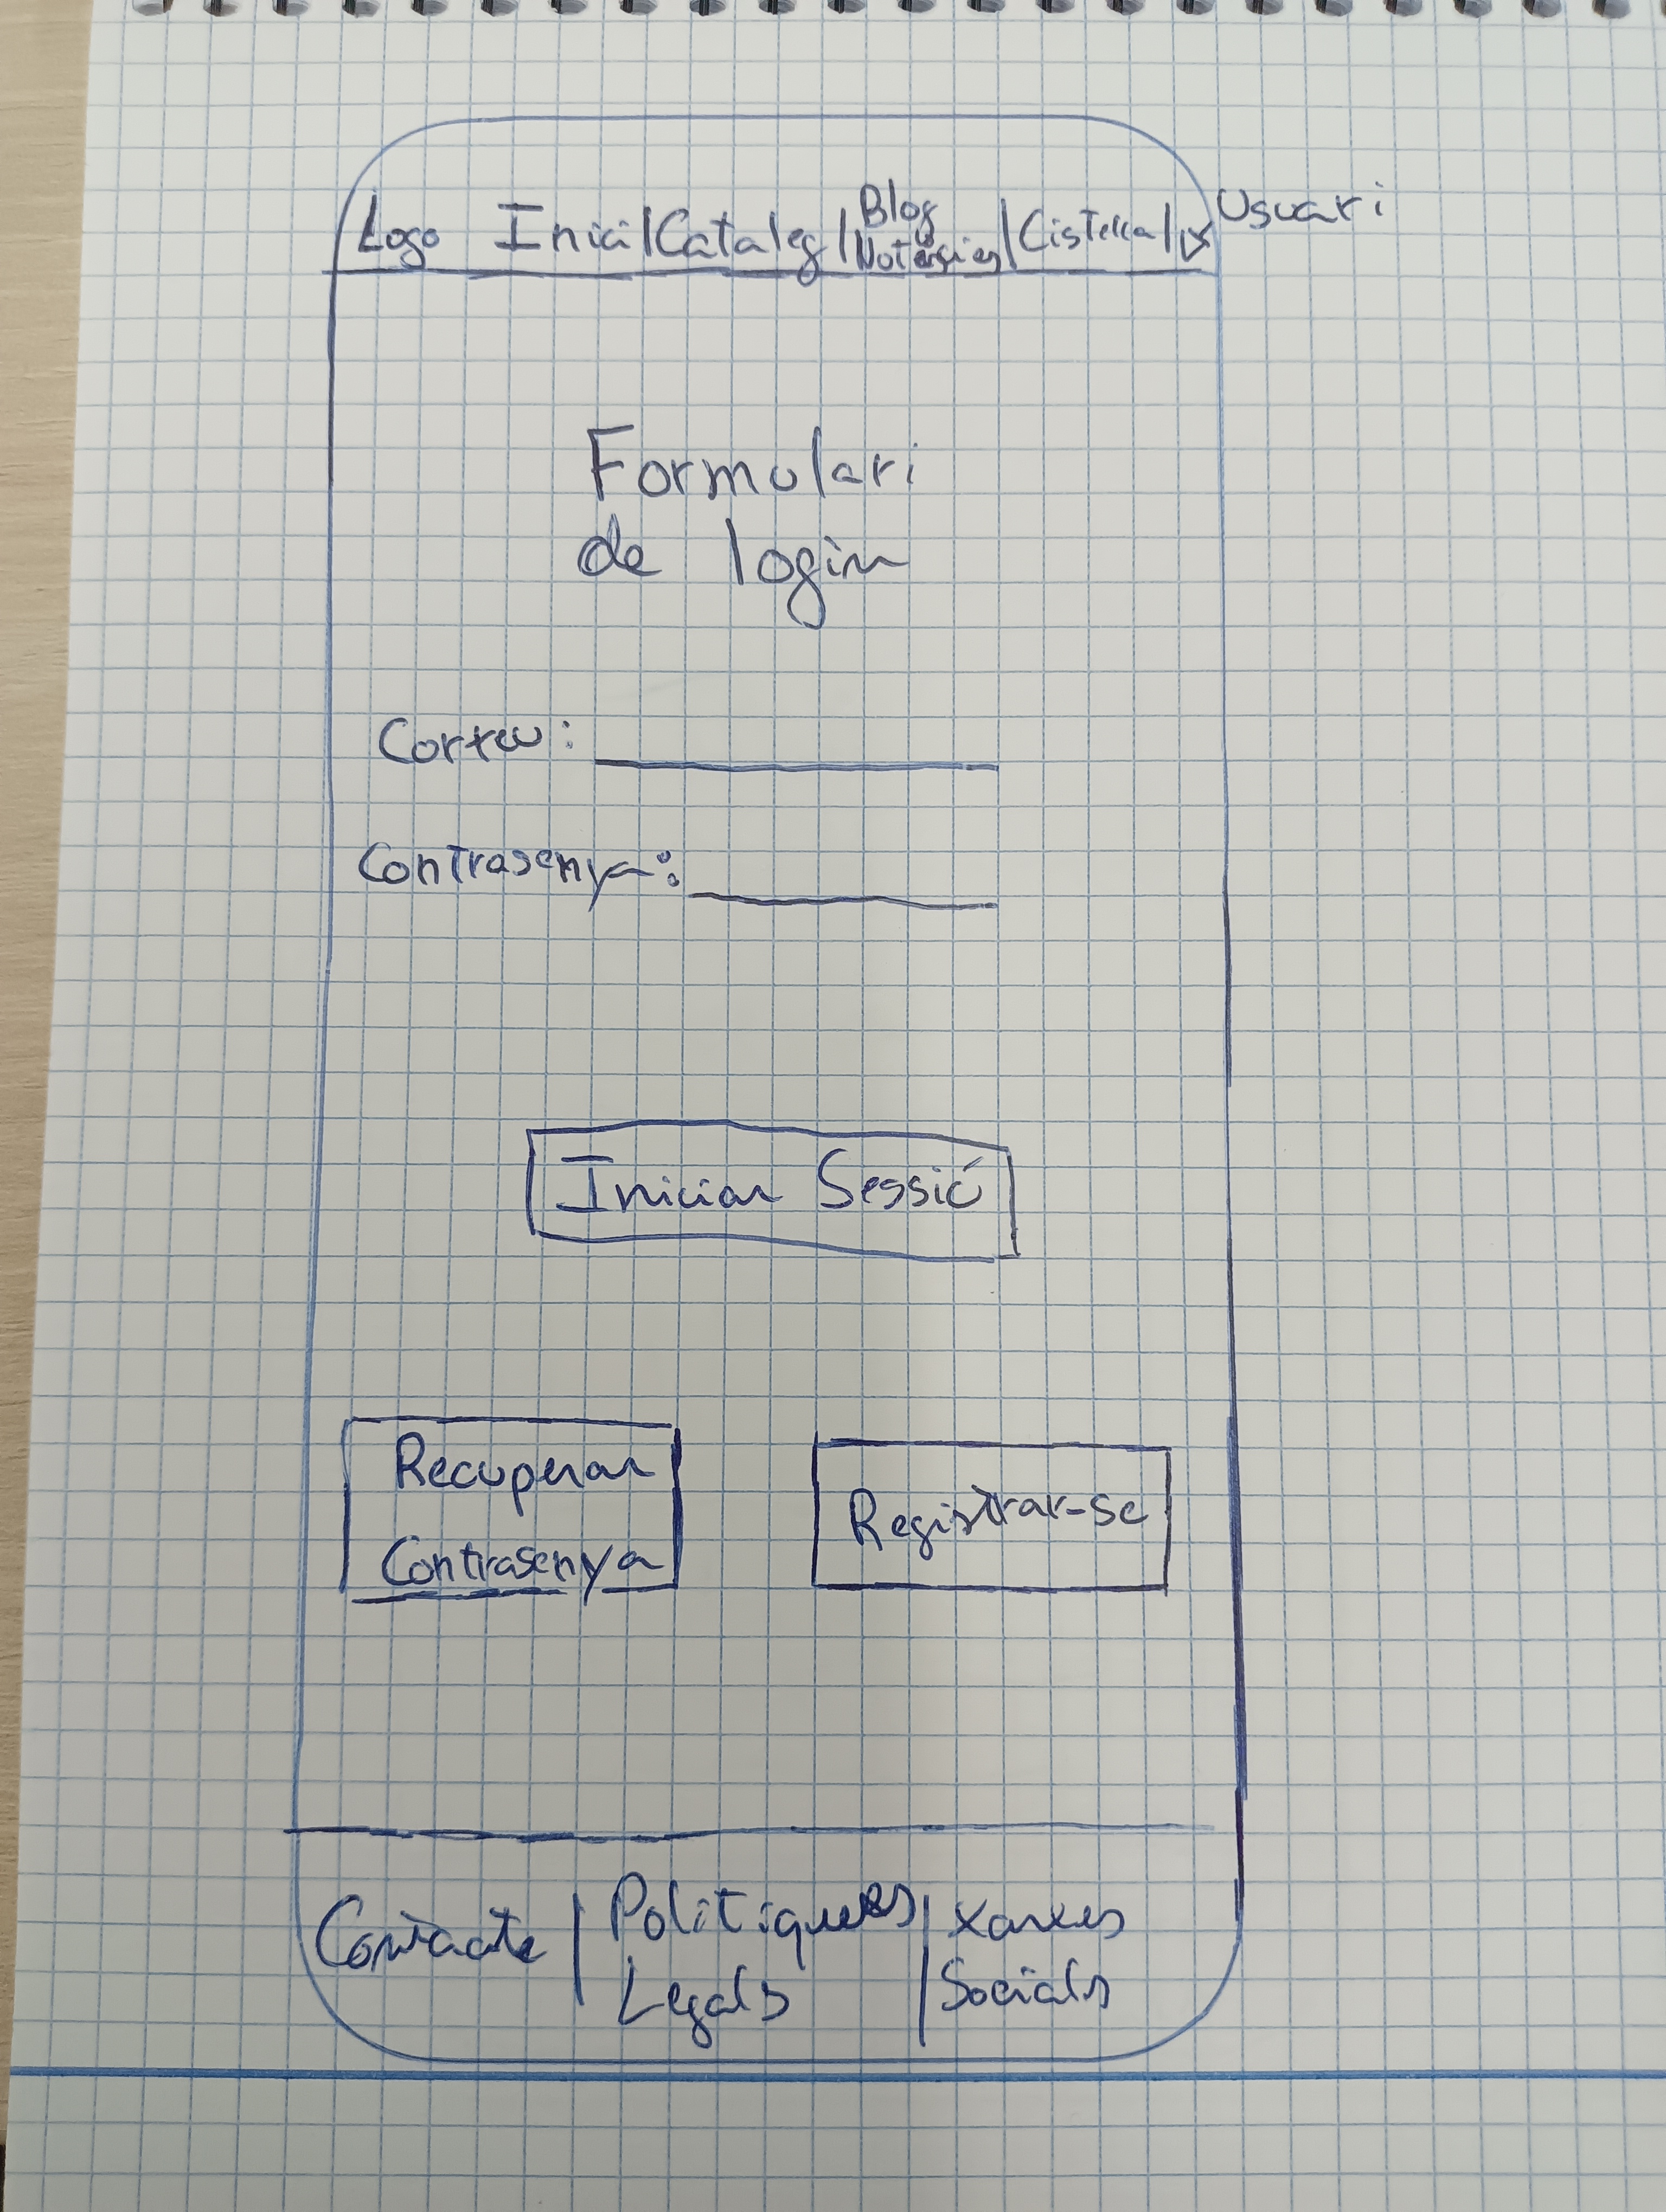 Logo Inici | Cataleg | Blog y Noticies | Cistella | Usuari
Formulari
de login
Correu:
Contrasenya:
Iniciar Sessió
Recuperar
Contrasenya
Registrar-se
Contacte | Politiques | Xarxes
Legals | Socials